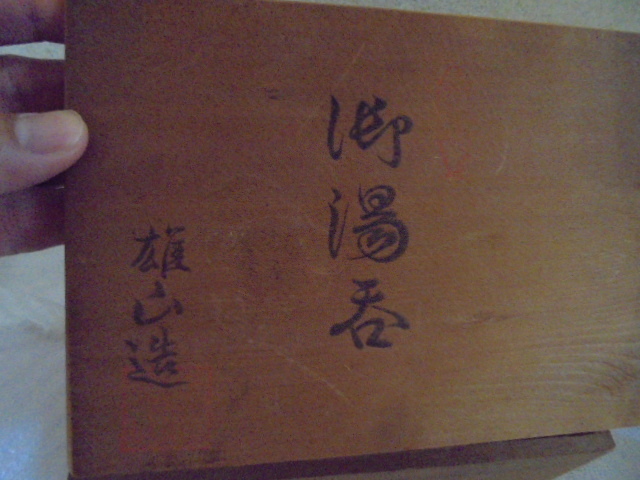 御湯呑
雄山造